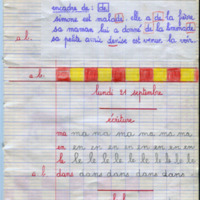 encadre de : de
simone est malade. elle a de la fièvre
sa maman lui a donné de la limonade
a.b. sa petite amie denise est venue la voir.
a.b.
lundi 21 septembre
écriture
ma ma ma ma ma ma ma
en en en en en en en en
le le le le le le le le le
a.b. dans dans dans dans dans